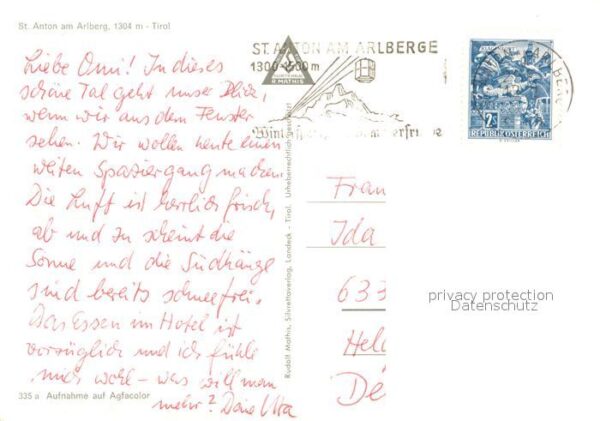 St. Anton am Arlberg, 1304 m - Tirol
Liebe Omi! In dieses
schöne Tal geht unser Blick,
wenn wir aus dem Fenster
sehen. Wir wollen heute einen
weiten Spaziergang machen.
Die Luft ist herrlich frisch,
ab und zu scheint die
Sonne und die Südhänge
sind bereits schneefrei.
Das Essen im Hotel ist
vorzüglich und ich fühle
mich wohl – was will man
mehr? Deine Uta
335 a Aufnahme auf Agfacolor
Rudolf Mathis, Silvrettaverlag, Landeck - Tirol. Urheberrechtlich geschützt
R. MATHIS
ST. ANTON AM ARLBERGE
1300-2500 m
2 S
REPUBLIK ÖSTERREICH
Frau
Ida
633
privacy protection
Datenschutz